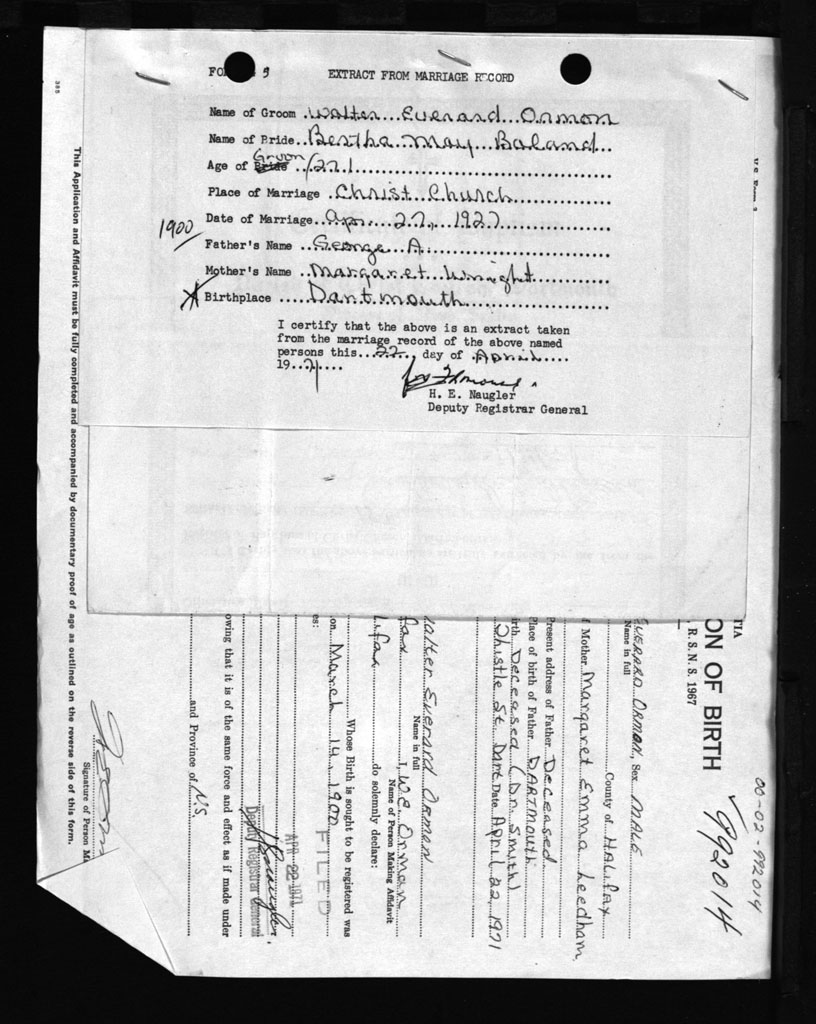 FO 5
EXTRACT FROM MARRIAGE RECORD
Name of Groom .Walter..Everard..Ormon
Name of Bride..Bertha..May..Baland...
Groom
Age of Bride ../27/................................
Place of Marriage .Christ.Church..............
Date of Marriage.Apr...27.,.1927............
1900
Father's Name ..George A..........................
Mother's Name ..Margaret.Wright............
Birthplace .....Dartmouth.....................
I certify that the above is an extract taken
from the marriage record of the above named
persons this...22.., day of .April....
19..71....
H. E. Naugler
Deputy Registrar General
385
This Application and Affidavit must be fully completed and accompanied by documentary proof of age as outlined on the reverse side of this form.
06-02-992014
992014
TIA
ON OF BIRTH
, R.S.N.S. 1967
EVERARD ORMON, Sex MALE
Name in full
County of HALIFAX
f Mother Margaret Emma Leedham
Present address of Father Deceased
Place of birth of Father DARTMOUTH
irth Deceased (Dr. Smith)
Thistle St. Dart Date April 22, 1971
alter Everard Ormon
Name in full
fax I, W.E. Orman
Name of Person Making Affidavit
lifax do solemnly declare:
Whose Birth is sought to be registered was
on March 14, 1900
es:
FILED
APR 22 1971
Deputy Registrar General
owing that it is of the same force and effect as if made under
and Province of N.S.
Signature of Person Ma